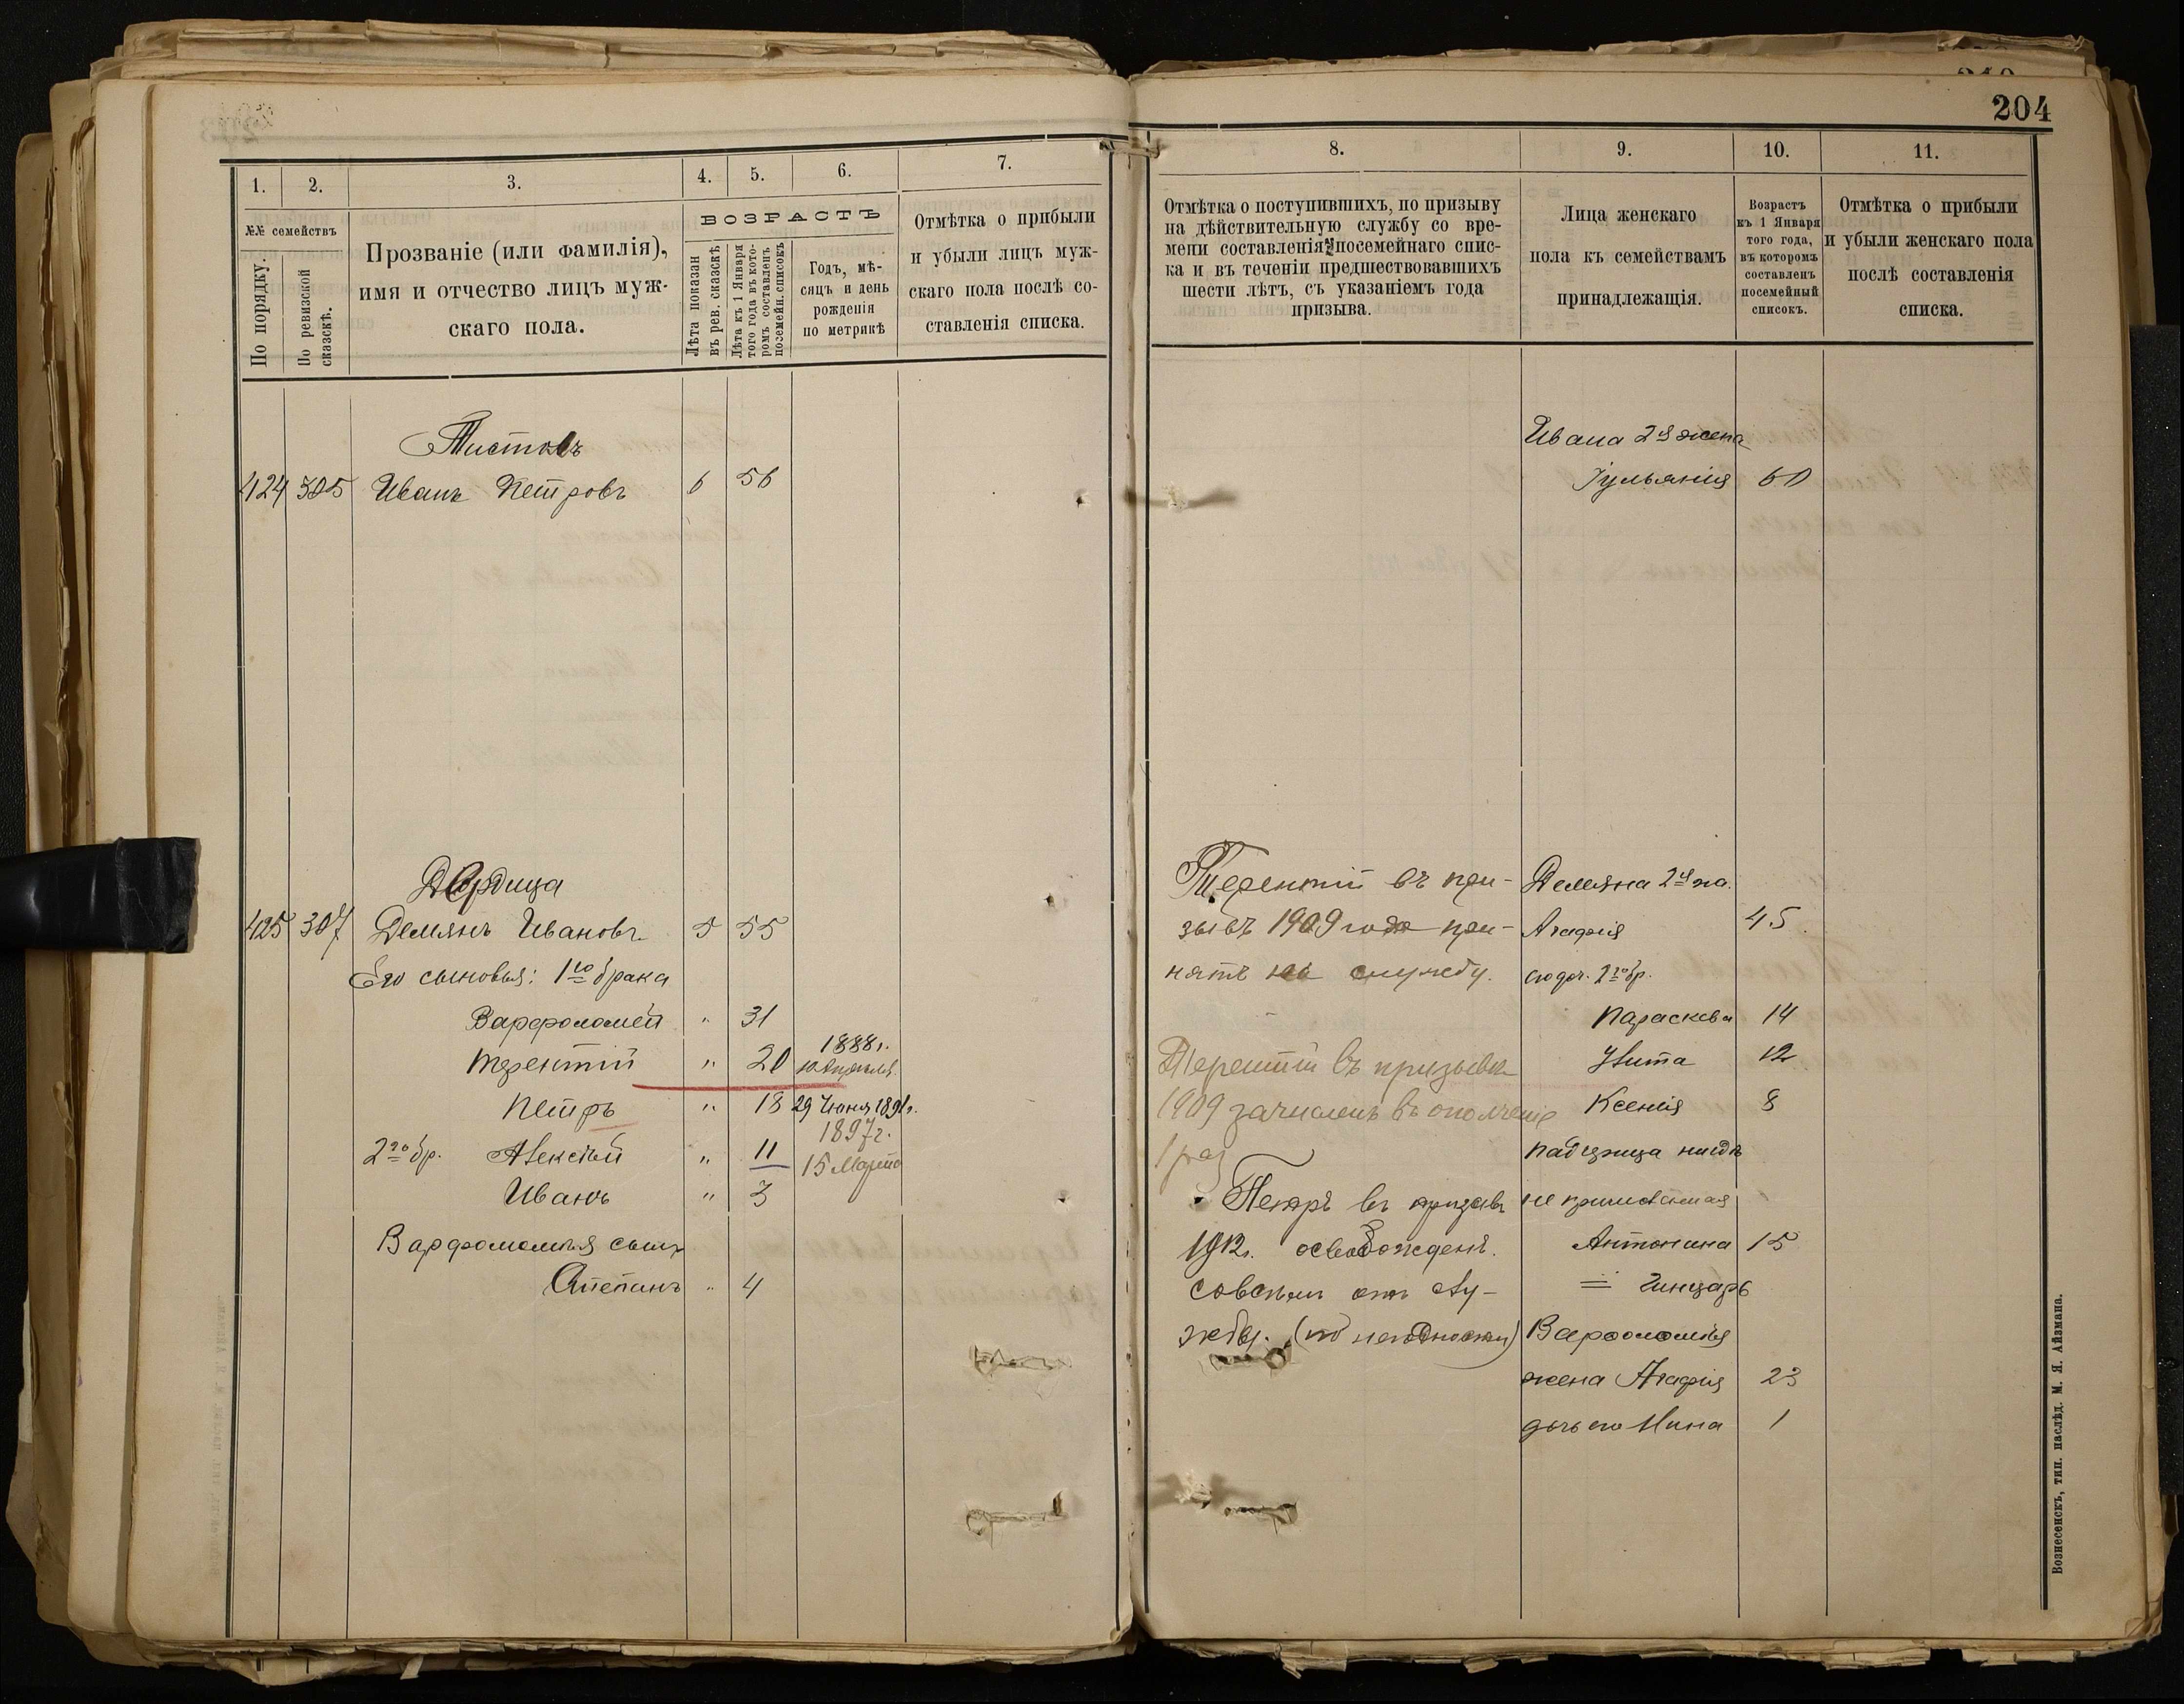 204
1.
2.
3.
4.
5.
6.
7.
№№ семействъ
По порядку.
По ревизской сказскѣ.
Прозваніе (или фамилія),
имя и отчество лицъ муж-
скаго пола.
ВОЗРАСТЪ
Лѣта показан
въ рев. сказскѣ
Лѣта къ 1 Января
того года въ кото-
ромъ составленъ
посемейн. списокъ
Годъ, мѣ-
сяцъ и день
рожденія
по метрикѣ
Отмѣтка о прибыли
и убыли лицъ муж-
скаго пола послѣ со-
ставленія списка.
Тистолъ
424 305 Иванъ Петровъ 6 56
Дердица
425 307 Демянъ Ивановъ 5 55
Его сыновья: 1го брака
Варфоломей " 31
Терентій " 20 1888г. 10 Апрѣля
Петръ " 18 29 Июня 1891г.
2го бр. Алексѣй " 11 1897г. 15 Марта
Иванъ " 3
Варфоломѣя сынъ
Степанъ " 4
8.
9.
10.
11.
Отмѣтка о поступившихъ, по призыву
на дѣйствительную службу со вре-
мени составленія посемейнаго спис-
ка и въ теченіи предшествовавшихъ
шести лѣтъ, съ указаніемъ года
призыва.
Лица женскаго
пола къ семействамъ
принадлежащія.
Возрастъ
къ 1 Января
того года,
въ которомъ
составленъ
посемейный
списокъ.
Отмѣтка о прибыли
и убыли женскаго пола
послѣ составленія
списка.
Ивана 2я жена
Іульянія 60
Терентій въ при-
зывъ 1909 года при-
нятъ на службу.
Терентій въ призывъ
1909 зачисленъ въ ополченіе
1 раз
Петръ въ призывъ
1912г. освобожденъ
совсѣмъ отъ слу-
жбы. (по негодности)
Демяна 2я жа.
Агафія 45
его доч. 2го бр.
Параскева 14
Улита 12
Ксенія 8
падчерица нигдѣ
не приписанная
Антонина 15
= Гинцарь
Варфоломѣя
жена Агафія 23
дочь его Нина 1
Вознесенскъ, тип. наслѣд. М. Я. Айзмана.